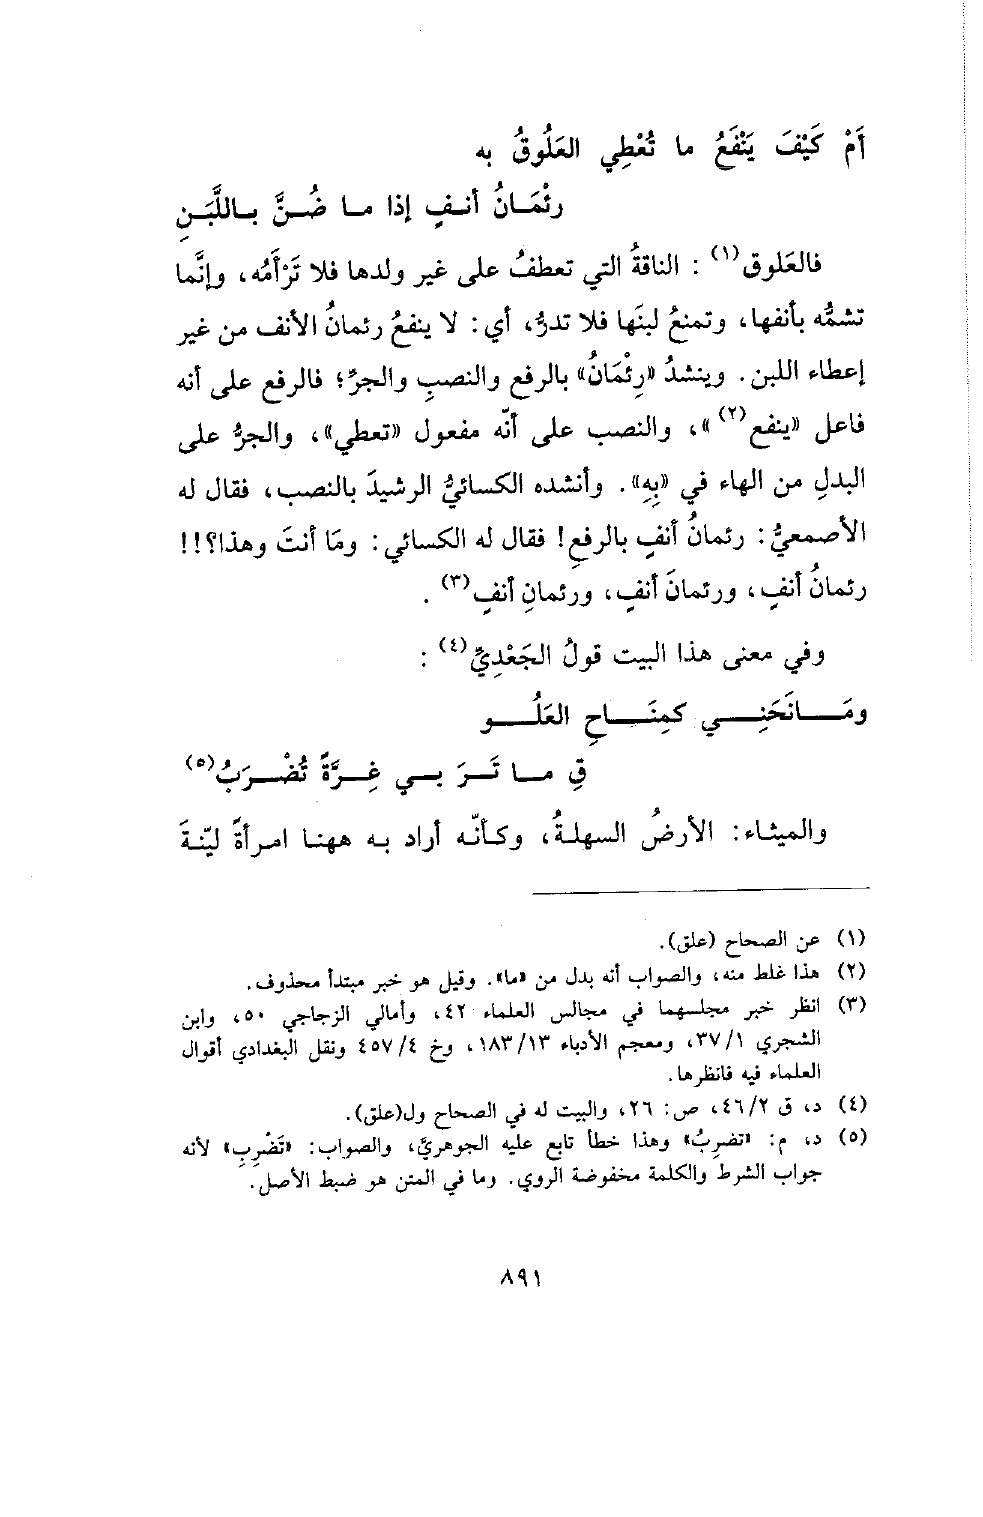 أَمْ كَيْفَ يَنْفَعُ ما تُعْطِي العَلُوقُ به
رِئْمَـانُ أنـفٍ إذا مـا ضُـنَّ بـاللَّبَـنِ
فالعَلوق(١) : الناقةُ التي تعطفُ على غير ولدها فلا تَرْأَمُه، وإنَّما
تشمُّه بأنفها، وتمنعُ لبنَها فلا تدرُّ، أي: لا ينفعُ رئمانُ الأنف من غير
إعطاء اللبن. وينشدُ «رِئْمَانُ» بالرفع والنصبِ والجرِّ؛ فالرفع على أنه
فاعل «ينفع(٢)»، والنصب على أنّه مفعول «تعطي»، والجرُّ على
البدلِ من الهاء في «بِهِ». وأنشده الكسائيُّ الرشيدَ بالنصب، فقال له
الأصمعيُّ: رئمانُ أنفٍ بالرفعِ! فقال له الكسائي: ومَا أنتَ وهذا؟!!
رئمانُ أنفٍ، ورئمانَ أنفٍ، ورئمانِ أنفٍ(٣).
وفي معنى هذا البيت قولُ الجَعْدِيِّ(٤):
ومَـــانَحَنِـــي كمِنَـــاحِ العَلُـــو
قِ مـا تَـرَ بـي غِـرَّةً تُضْـرَبُ(٥)
والميثاء: الأرضُ السهلـةُ، وكـأنّـه أراد بـه ههنـا امـرأةً ليّنـةَ
(١) عن الصحاح (علق).
(٢) هذا غلط منه، والصواب أنه بدل من «ما». وقيل هو خبر مبتدأ محذوف.
(٣) انظر خبر مجلسهما في مجالس العلماء ٤٢، وأمالي الزجاجي ٥٠، وابن
الشجري ٣٧/١، ومعجم الأدباء ١٨٣/١٣، وخ ٤٥٧/٤ ونقل البغدادي أقوال
العلماء فيه فانظرها.
(٤) د، ق ٤٦/٢، ص: ٢٦، والبيت له في الصحاح ول(علق).
(٥) د، م: «تضرِبُ» وهذا خطأ تابع عليه الجوهريَّ، والصواب: «تَضْرِبِ» لأنه
جواب الشرط والكلمة مخفوضة الروي. وما في المتن هو ضبط الأصل.
٨٩١